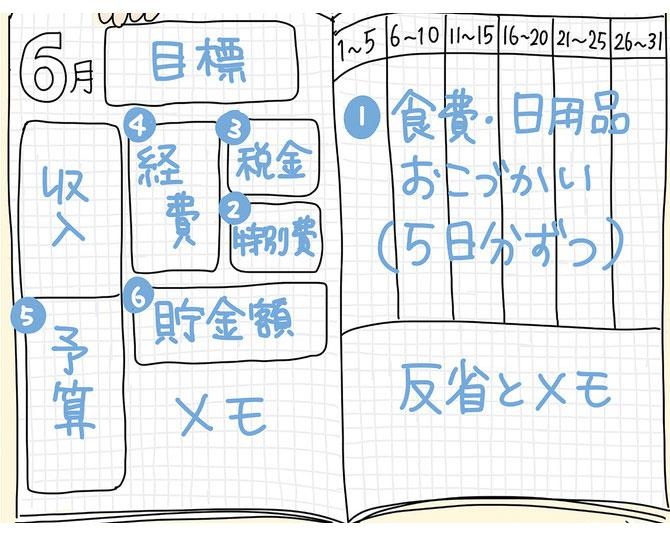 6月
目標
収入
4
経費
3
税金
2
特別費
5
予算
6
貯金額
メモ
1~5 6~10 11~15 16~20 21~25 26~31
1
食費・日用品
おこづかい
(5日分ずつ)
反省とメモ